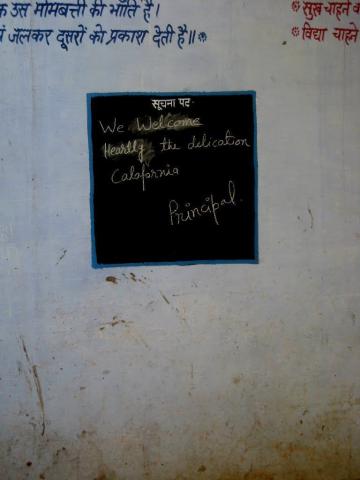 क उस मोमबत्ती की भाँति है।
जलकर दूसरों को प्रकाश देती है॥
सुख चाहने
विद्या चाहने
सूचना पट
We Welcome
Heartly the delication
Calafornia
Principal.